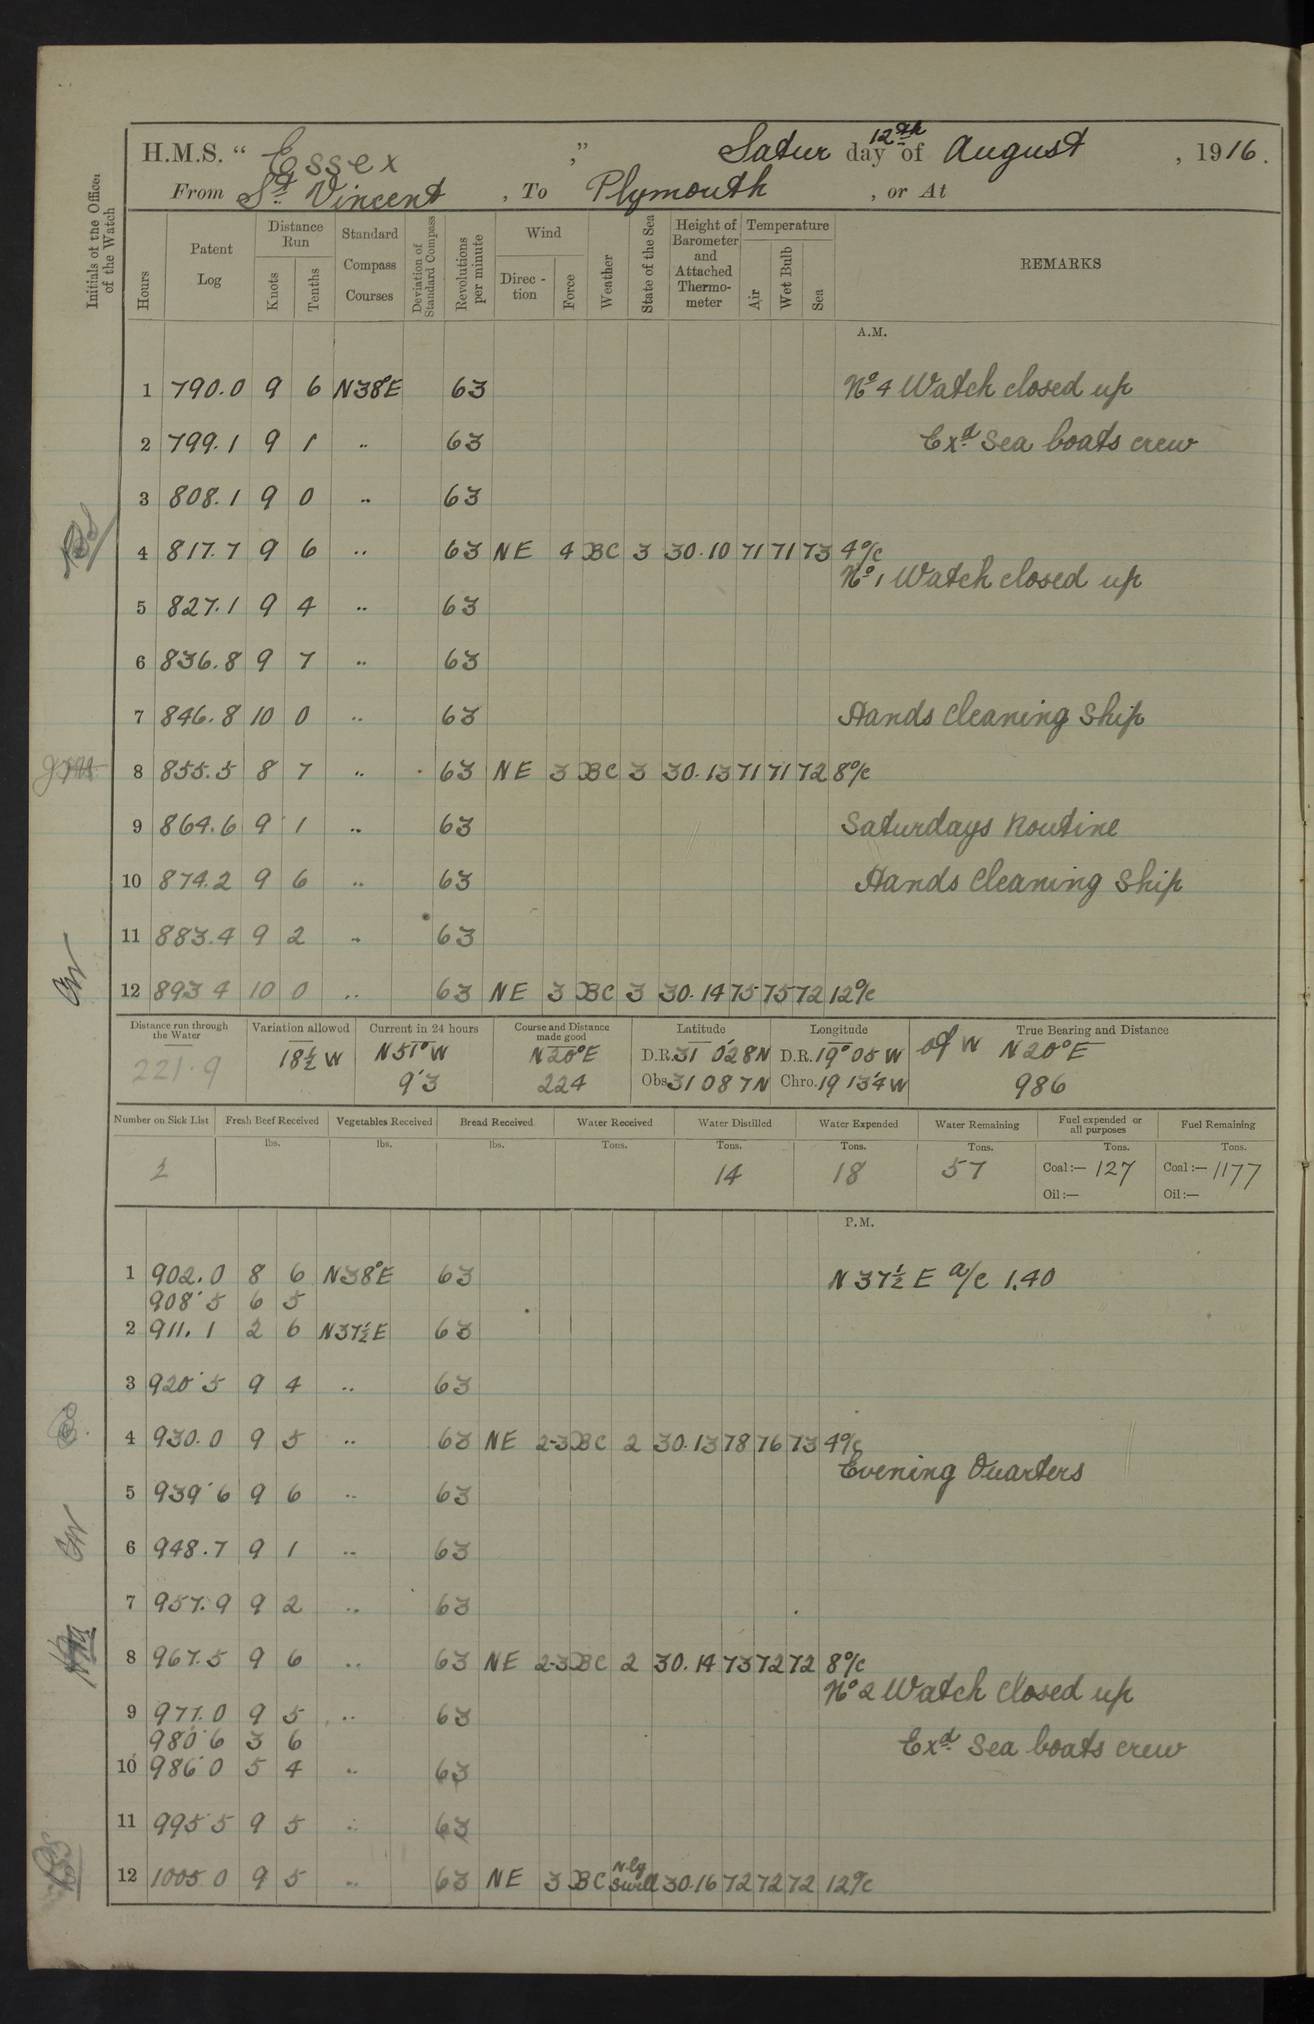 H.M.S. “ Essex ,” Satur day 12th of August , 1916 .
From St. Vincent , To Plymouth , or At
Initials of the Officer of the Watch
Hours Patent Log Distance Run Knots Tenths Standard Compass Courses Deviation of Standard Compass Revolutions per minute Wind Direc-tion Force Weather State of the Sea Height of Barometer and Attached Thermo-meter Temperature Air Wet Bulb Sea REMARKS
A.M.
1 790.0 9 6 N38°E 63 No 4 Watch closed up
2 799.1 9 1 .. 63 Exd Sea boats crew
3 808.1 9 0 .. 63
4 817.7 9 6 .. 63 NE 4 BC 3 30.10 71 71 73 4 o/c
No 1 Watch closed up
5 827.1 9 4 .. 63
6 836.8 9 7 .. 63
7 846.8 10 0 .. 63 Hands cleaning ship
8 855.5 8 7 .. 63 NE 3 BC 3 30.13 71 71 72 8 o/c
9 864.6 9 1 .. 63 Saturdays Routine
10 874.2 9 6 .. 63 Hands cleaning ship
11 883.4 9 2 .. 63
12 893 4 10 0 .. 63 NE 3 BC 3 30.14 75 75 72 12 o/c
Distance run through the Water Variation allowed Current in 24 hours Course and Distance made good Latitude Longitude True Bearing and Distance
221.9 18½ W N51°W N20°E D.R. 31 02'8 N D.R. 19° 05 W of W N20°E
9'3 224 Obs 31 08 7 N Chro. 19 13'4 W 986
Number on Sick List Fresh Beef Received Vegetables Received Bread Received Water Received Water Distilled Water Expended Water Remaining Fuel expended or all purposes Fuel Remaining
lbs. lbs. lbs. Tons. Tons. Tons. Tons. Tons. Tons.
2 14 18 57 Coal:— 127 Coal:— 1177
Oil:— Oil:—
P.M.
1 902.0 8 6 N38°E 63 N 37½ E a/c 1.40
908.5 6 5
2 911.1 2 6 N37½E 63
3 920.5 9 4 .. 63
4 930.0 9 5 .. 63 NE 2-3 BC 2 30.13 78 76 73 4 o/c
Evening Quarters
5 939.6 9 6 .. 63
6 948.7 9 1 .. 63
7 957.9 9 2 .. 63
8 967.5 9 6 .. 63 NE 2-3 BC 2 30.14 73 72 72 8 o/c
No 2 Watch closed up
9 977.0 9 5 .. 63
980.6 3 6 Exd Sea boats crew
10 986.0 5 4 .. 63
11 995.5 9 5 .. 63
12 1005.0 9 5 .. 63 NE 3 BC N'ly Swell 30.16 72 72 72 12 o/c